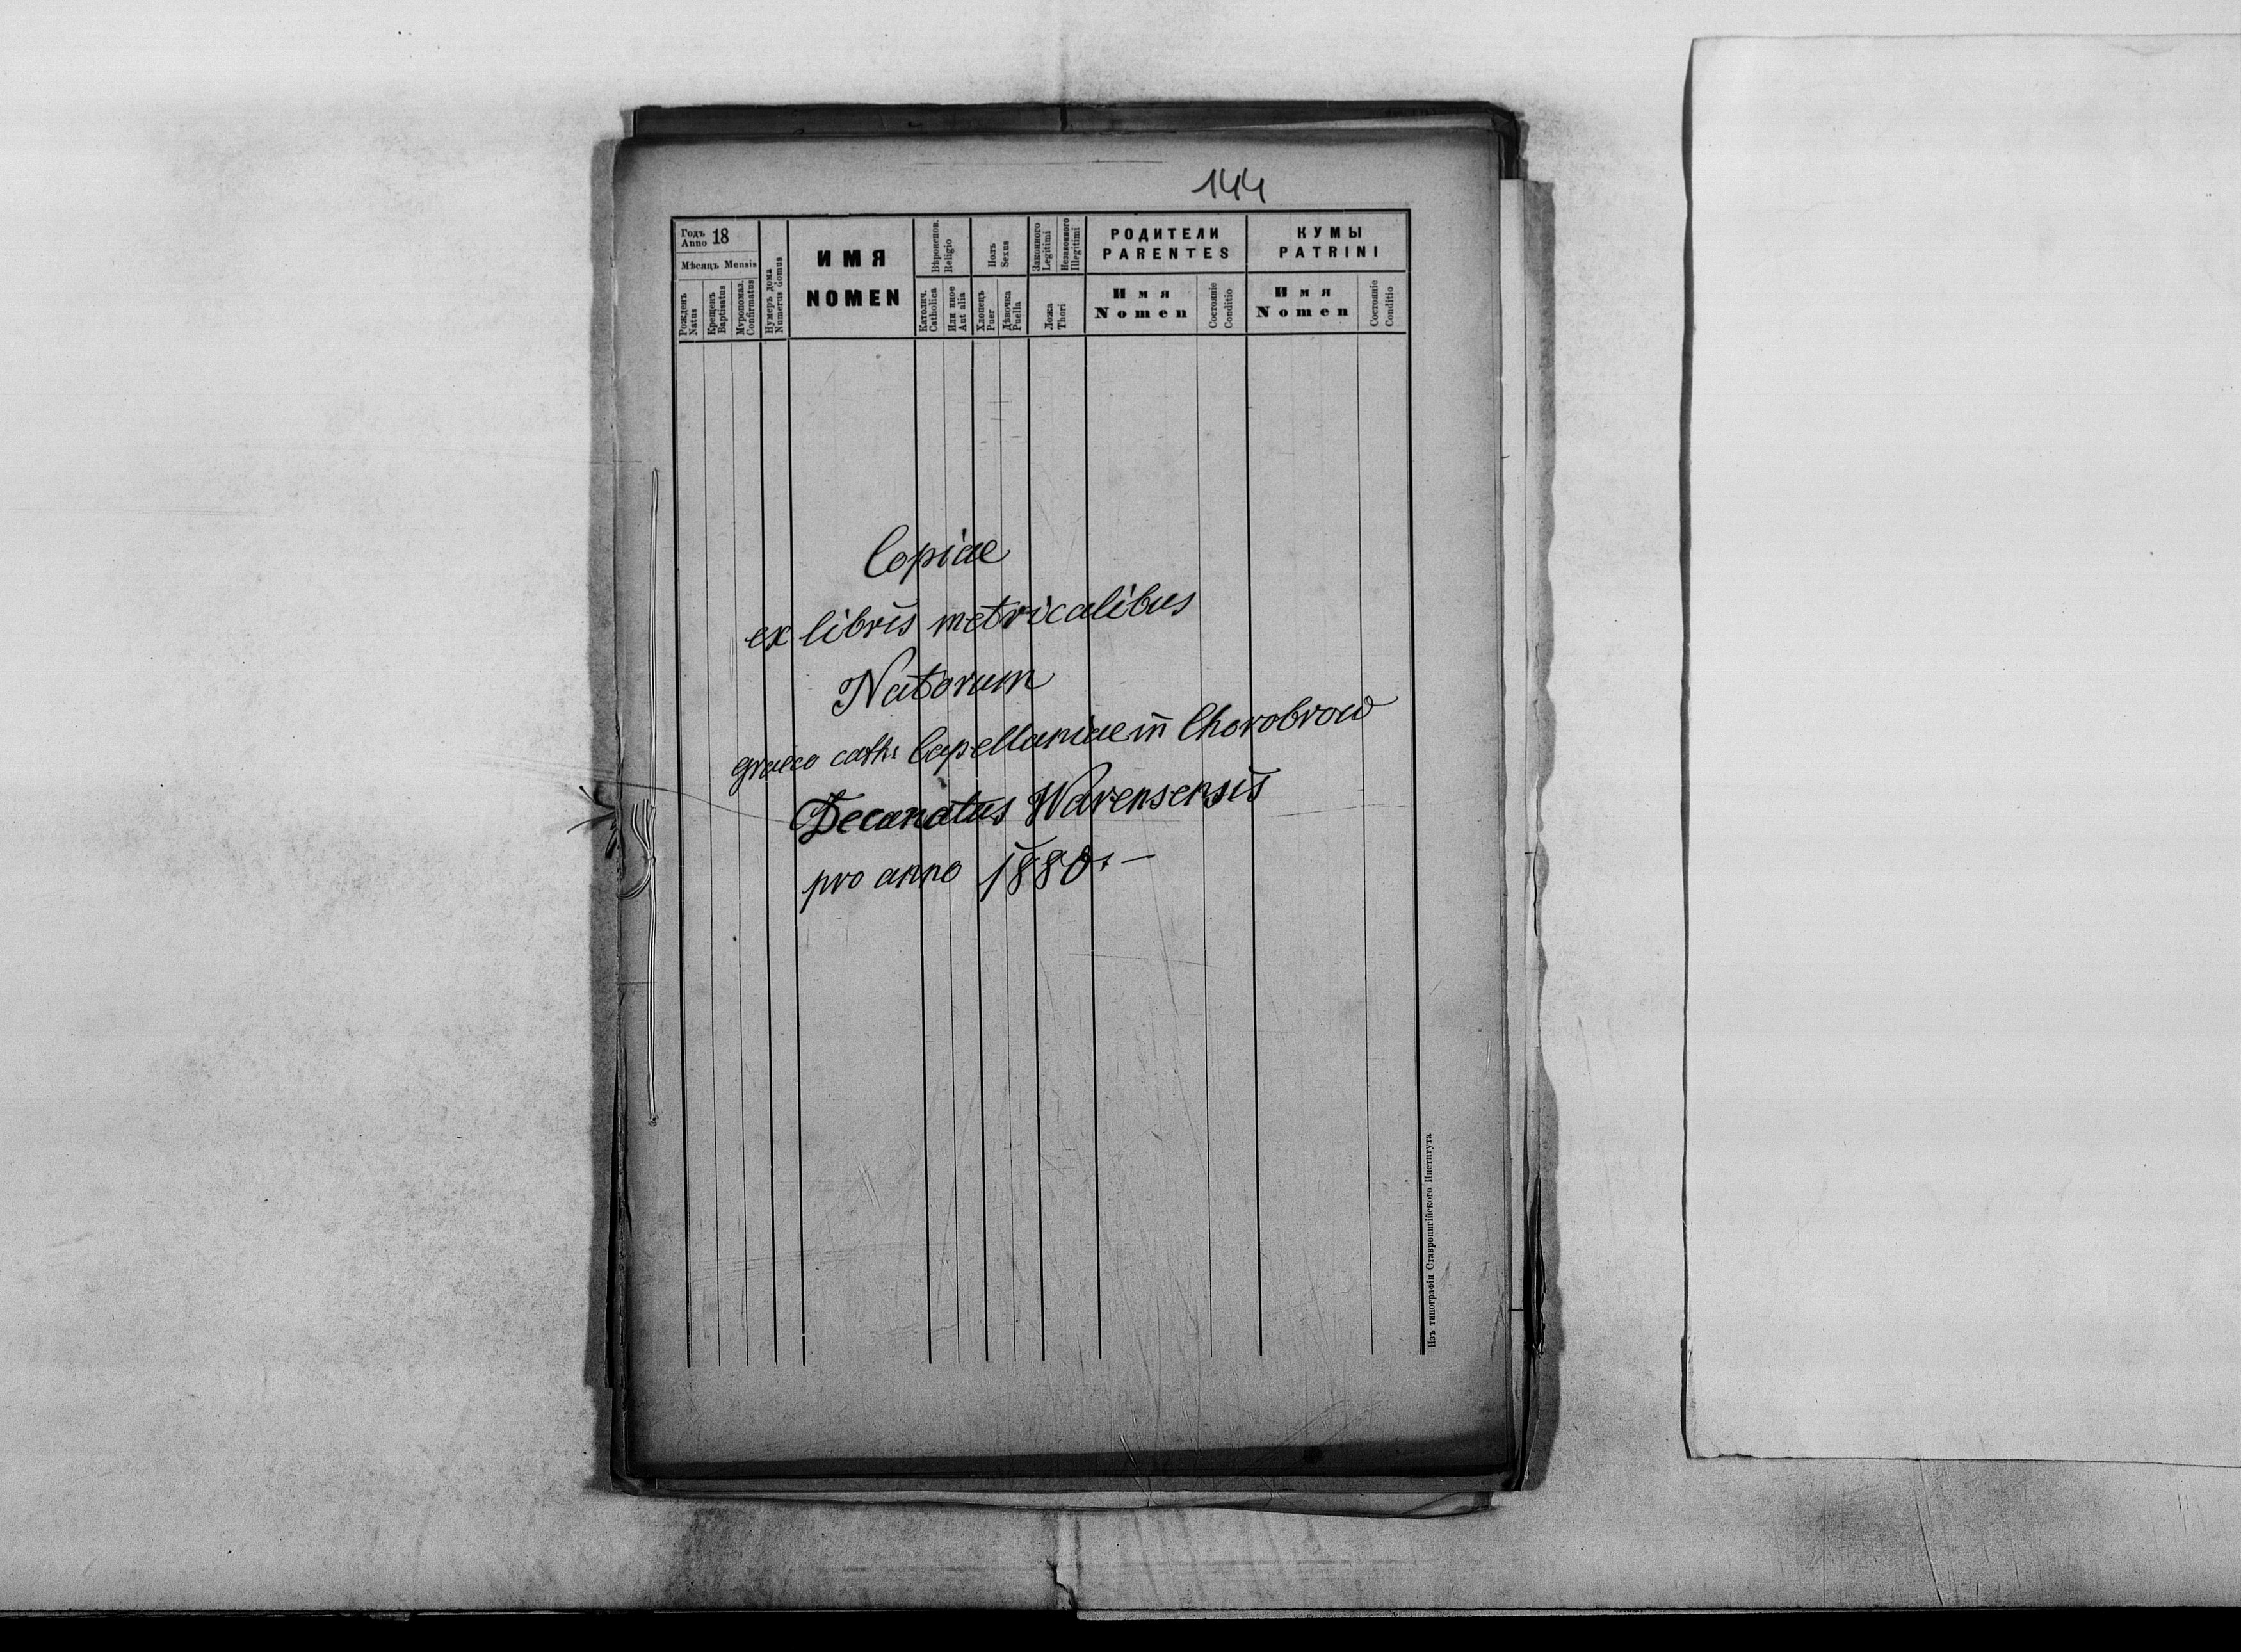 144
Годъ
Anno 18
Мѣсяцъ Mensis
Рожденъ
Natus
Крещенъ
Baptisatus
Мvропомаз.
Confirmatus
Нумеръ дома
Numerus domus
ИМЯ
NOMEN
Вѣроиспов.
Religio
Католич.
Catholica
Или иное
Aut alia
Полъ
Sexus
Хлопецъ
Puer
Дѣвочка
Puella
Законного
Legitimi
Незаконного
Illegitimi
Ложа
Thori
РОДИТЕЛИ
PARENTES
Имя
Nomen
Состояніе
Conditio
КУМЫ
PATRINI
Имя
Nomen
Состояніе
Conditio
Copiae
ex libris metricalibus
Natorum
graeco cath: Capellaniae in Chorobrow
Decanatus Warensensis
pro anno 1880. –
Изъ типографіи Ставропигійского Института